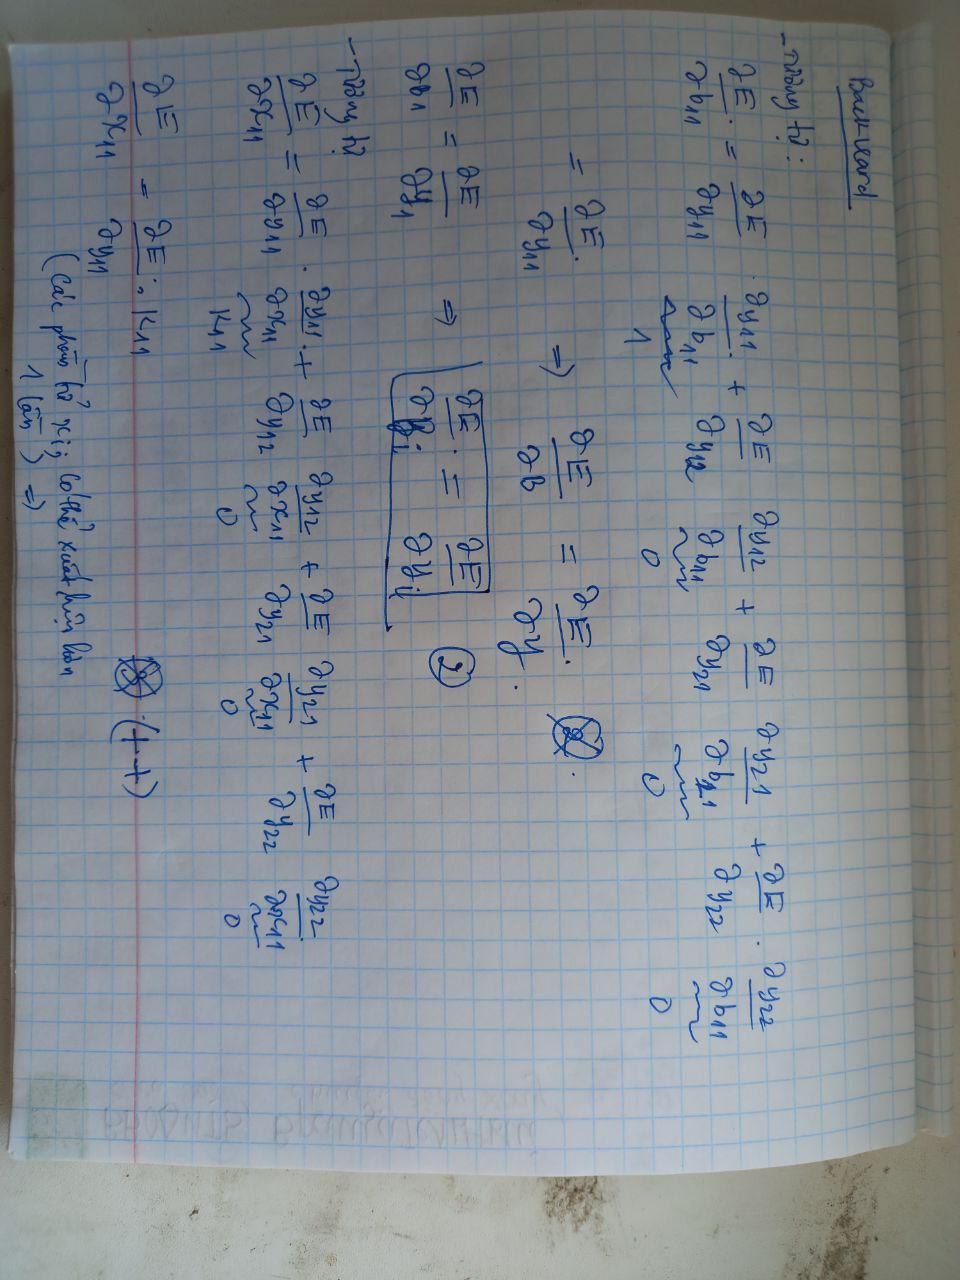 Backward
- Tương tự:
∂E/∂b11 = ∂E/∂y11 · ∂y11/∂b11 + ∂E/∂y12 ∂y12/∂b11 + ∂E/∂y21 ∂y21/∂b11 + ∂E/∂y22 · ∂y22/∂b11
1 0 0 0
= ∂E/∂y11 ⇒ ∂E/∂B = ∂E/∂Y.
∂E/∂B1 = ∂E/∂Y1 ⇒ ∂E/∂Bi = ∂E/∂Yi ②
- Tương tự
∂E/∂x11 = ∂E/∂y11 · ∂y11/∂x11 + ∂E/∂y12 ∂y12/∂x11 + ∂E/∂y21 ∂y21/∂x11 + ∂E/∂y22 ∂y22/∂x11
K11 0 0 0
∂E/∂x11 = ∂E/∂y11 · K11 (++)
(Các phần tử xij có thể xuất hiện hơn
1 lần) ⇒